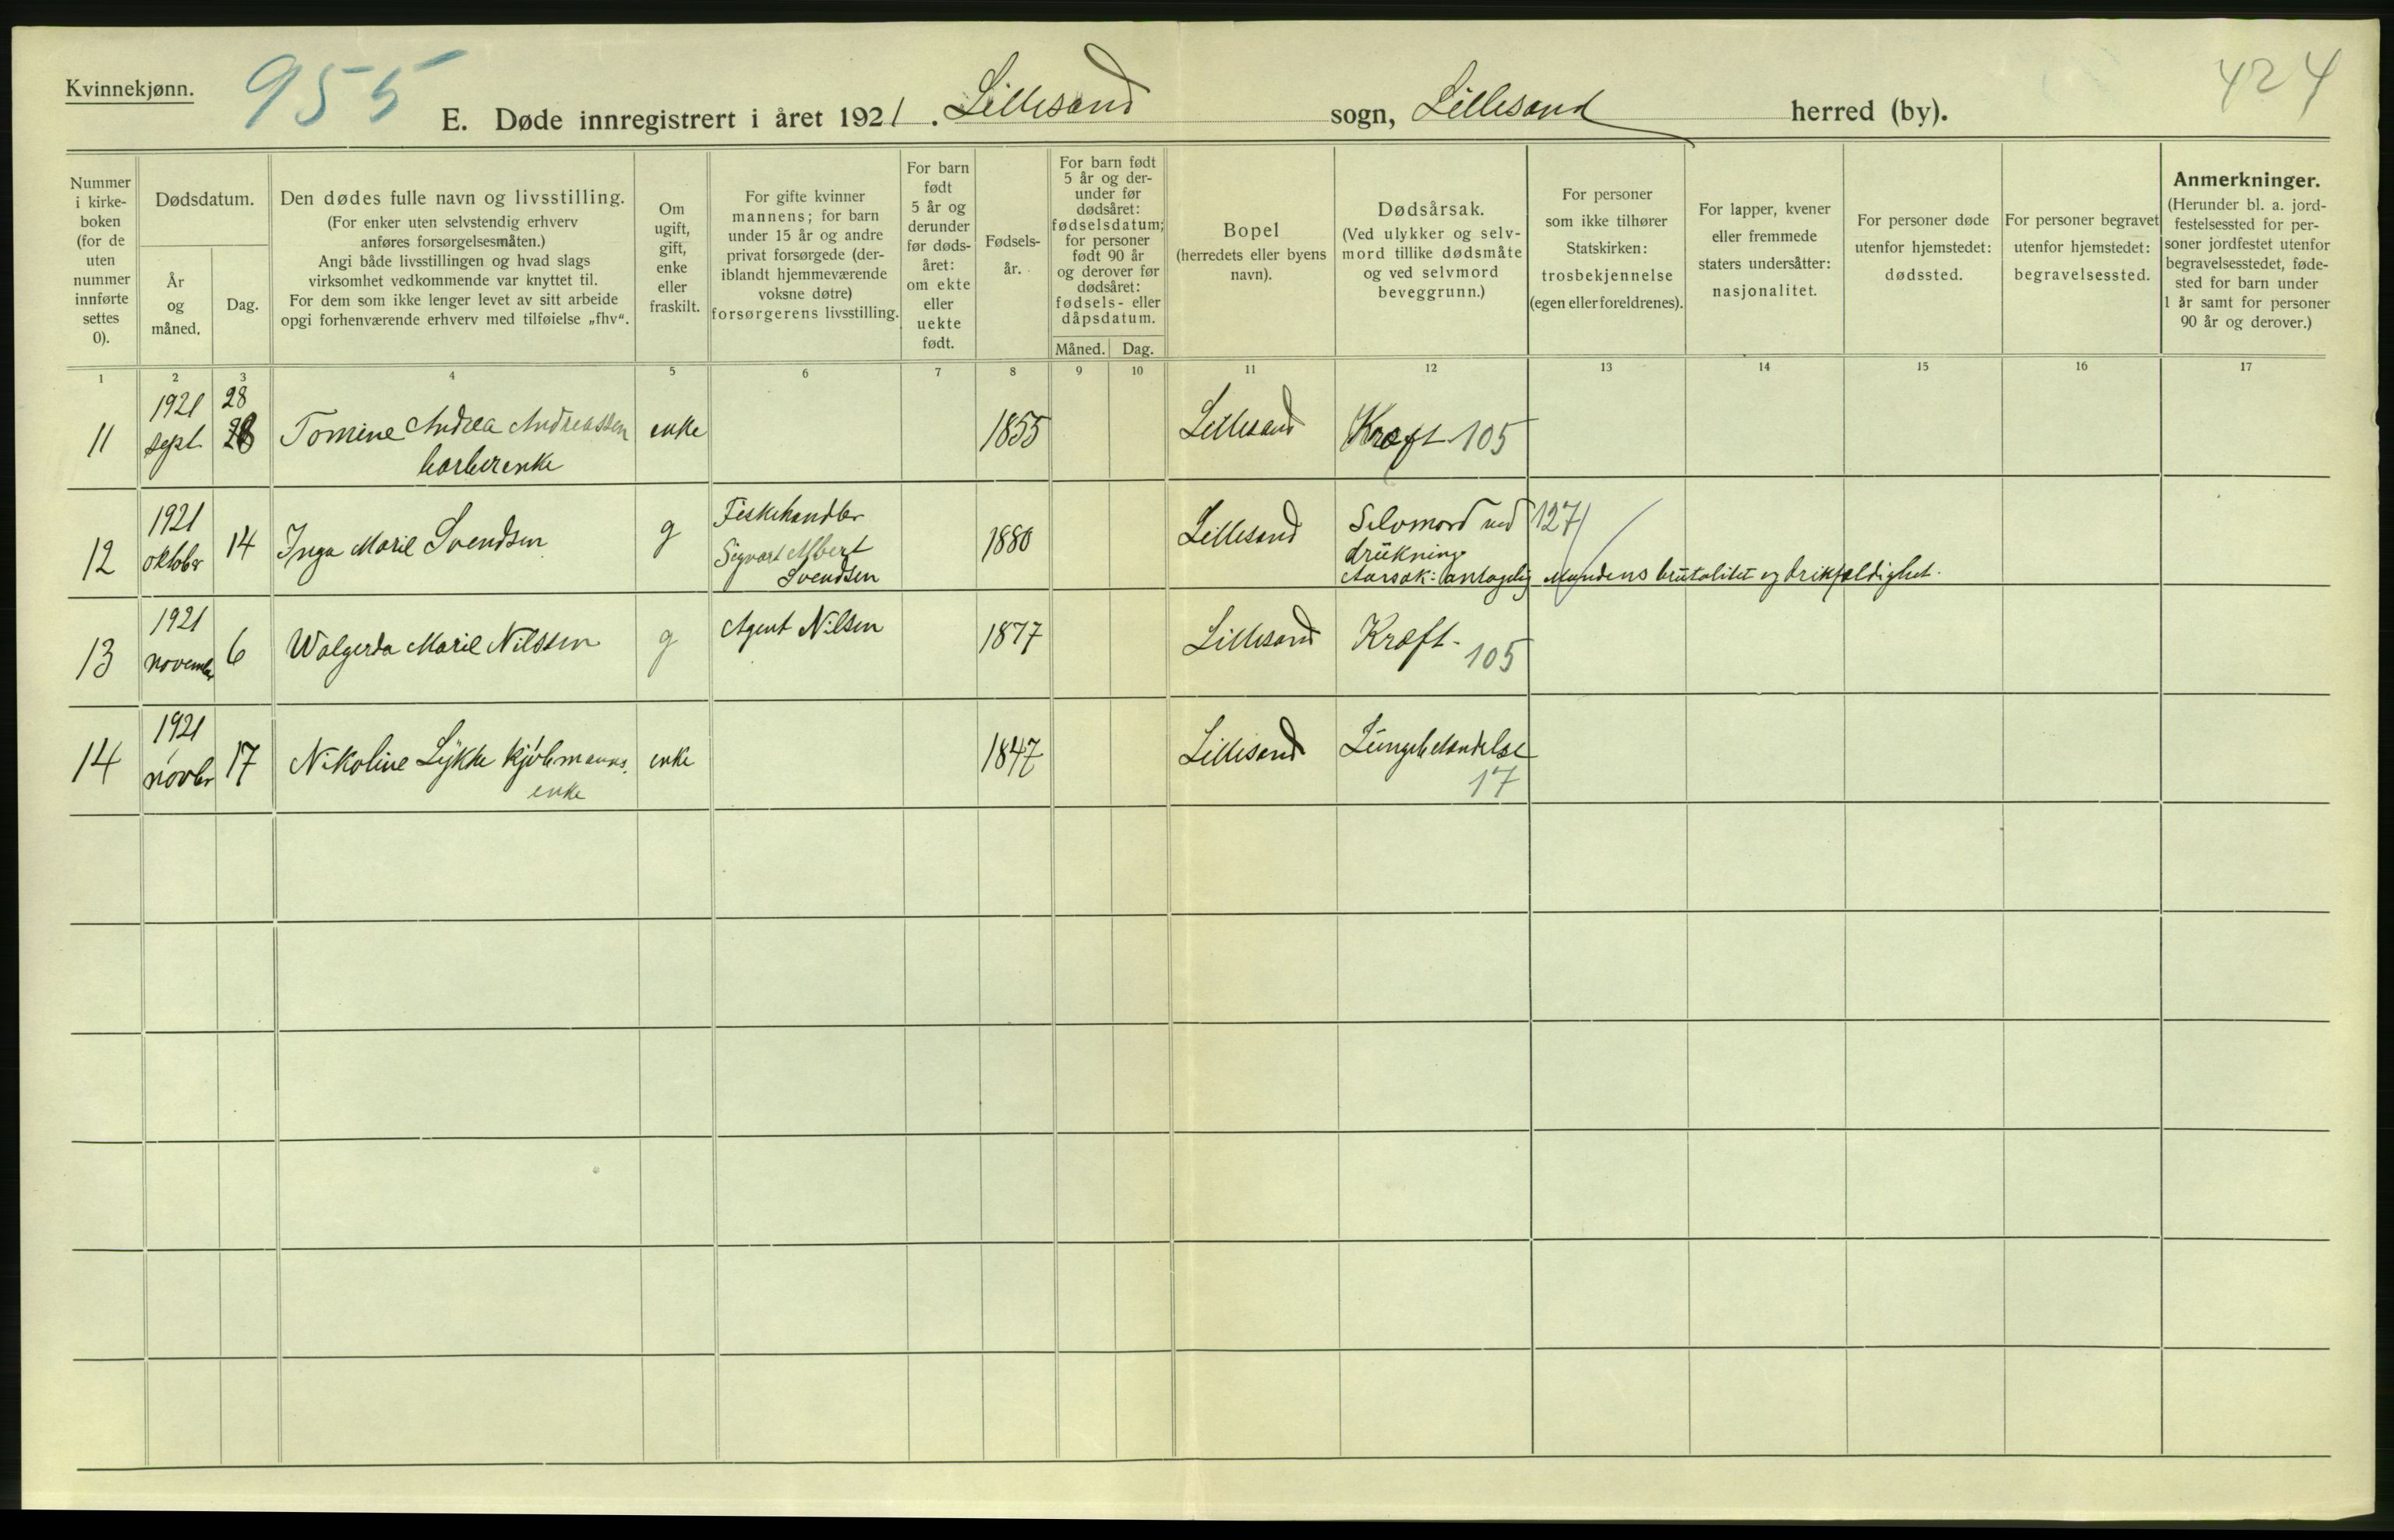 Kvinnekjønn.
955
424
E. Døde innregistrert i året 1921. Lillesand sogn, Lillesand herred (by).
Nummer
i kirke-
boken
(for de
uten
nummer
innførte
settes
0).
Dødsdatum.
År
og
måned.
Dag.
Den dødes fulle navn og livsstilling.
(For enker uten selvstendig erhverv
anføres forsørgelsesmåten.)
Angi både livsstillingen og hvad slags
virksomhet vedkommende var knyttet til.
For dem som ikke lenger levet av sitt arbeide
opgi forhenværende erhverv med tilføielse „fhv“.
Om
ugift,
gift,
enke
eller
fraskilt.
For gifte kvinner
mannens; for barn
under 15 år og andre
privat forsørgede (der-
iblandt hjemmeværende
voksne døtre)
forsørgerens livsstilling.
For barn
født
5 år og
derunder
før døds-
året:
om ekte
eller
uekte
født.
Fødsels-
år.
For barn født
5 år og der-
under før
dødsåret:
fødselsdatum;
for personer
født 90 år
og derover før
dødsåret:
fødsels- eller
dåpsdatum.
Måned. Dag.
Bopel
(herredets eller byens
navn).
Dødsårsak.
(Ved ulykker og selv-
mord tillike dødsmåte
og ved selvmord
beveggrunn.)
For personer
som ikke tilhører
Statskirken:
trosbekjennelse
(egen eller foreldrenes).
For lapper, kvener
eller fremmede
staters undersåtter:
nasjonalitet.
For personer døde
utenfor hjemstedet:
dødssted.
For personer begravet
utenfor hjemstedet:
begravelsessted.
Anmerkninger.
(Herunder bl. a. jord-
festelsessted for per-
soner jordfestet utenfor
begravelsesstedet, føde-
sted for barn under
1 år samt for personer
90 år og derover.)
1 2 3 4 5 6 7 8 9 10 11 12 13 14 15 16 17
1921 28
11 sept. 28 Tomine Andrea Andreassen enke 1855 Lillesand Kræft 105
barberenke
1921 Fiskehandler Selvmord ved 127
12 oktober 14 Inga Marie Svendsen g Sigvart Albert 1880 Lillesand drukning
Svendsen Aarsak: antagelig Mandens brutalitet og drikfældighet.
1921
13 november 6 Walgerda Marie Nilssen g Agent Nilsen 1877 Lillesand Kræft - 105
1921
14 novbr 17 Nikoline Lykke kjøbmanns. enke 1847 Lillesand Lungebetændelse
enke 17